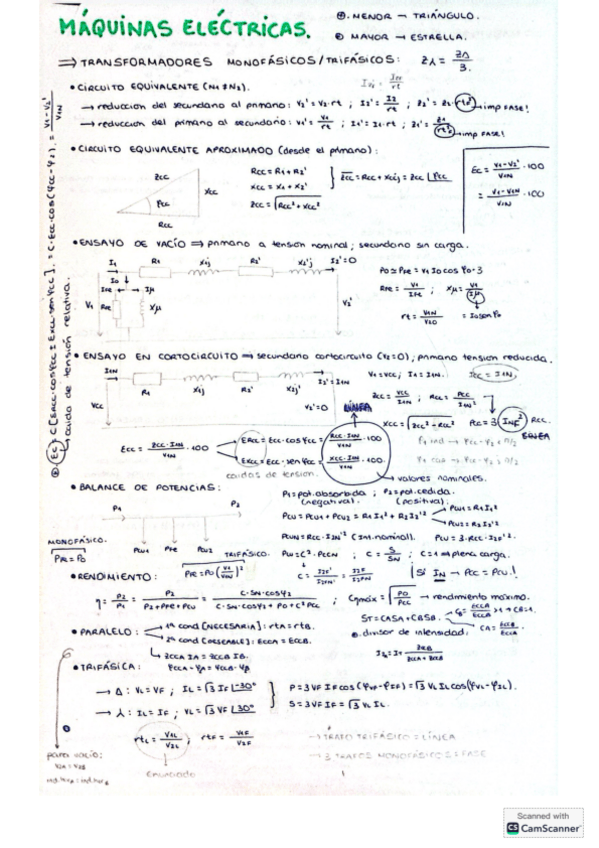 MÁQUINAS ELÉCTRICAS.
⊕. MENOR → TRIÁNGULO.
⊕ MAYOR → ESTRELLA.
⇒ TRANSFORMADORES MONOFÁSICOS/TRIFÁSICOS: Zλ = ZΔ/3.
• CIRCUITO EQUIVALENTE (N1≠N2).
→ reduccion del secundario al primario: V2' = V2·rt ; I2' = I2/rt ; Z2' = Z2·rt² → imp FASE!
→ reduccion del primario al secundario: V1' = V1/rt ; I1' = I1·rt ; Z1' = Z1/rt² → imp FASE!
• CIRCUITO EQUIVALENTE APROXIMADO (desde el primario):
Zcc
Xcc
φcc
Rcc
Rcc = R1 + R2'
Xcc = X1 + X2'
Zcc = √Rcc² + Xcc²
Zcc = Rcc + Xccj = Zcc∠φcc
Ec = V1-V2'/V1N · 100
= V1-V2N/V1N · 100
• ENSAYO DE VACÍO ⇒ primario a tensión nominal; secundario sin carga.
I1 R1 X1j R2' X2'j I2'=0
I0
IFe Iμ
V1 RFe Xμ
V2'
P0 ≃ PFe = V1 I0 cos φ0·3
RFe = V1/IFe ; Xμ = V1/Iμ
rt = V1N/V20
= I0 sen φ0
• ENSAYO EN CORTOCIRCUITO ⇒ secundario cortocircuito (V2=0); primario tension reducida.
I1N
R1 X1j R2' X2j' I2'=I2N
Vcc
V2'=0
V1 = Vcc; I1 = I1N. Icc = I1N.
Zcc = Vcc/I1N ; Rcc = Pcc/I1N²
Xcc = √Zcc² - Rcc² Pcc = 3 INF² Rcc.
LÍNEA
Ecc = Zcc·I1N/V1N · 100
ERcc = Ecc·cos φcc = Rcc·I1N/V1N · 100
EXcc = Ecc·sen φcc = Xcc·I1N/V1N · 100.
caidas de tension.
valores nominales.
caida de tensión relativa.
• BALANCE DE POTENCIAS:
P1 P2
PCu1 PFe PCu2
P1 = pot. absorbida ; P2 = pot. cedida.
(negativa). (positiva).
PCu = PCu1 + PCu2 = R1 I1² + R2 I2'²
PCu1 = R1 I1²
PCu2 = R2 I2'²
PCuN = Rcc·I2N'² (Int. nominal). PCu = 3·Rcc·I2F'²
MONOFÁSICO.
PFe = P0
TRIFÁSICO.
PFe = P0 (V1/V1N)²
PCu = C²·PccN ; C = S/SN ; C=1 ⇒ plena carga.
¡Si IN → Pcc = PCu!
• RENDIMIENTO:
η = P2/P1 = P2/P2+PFe+PCu = C·SN·cosφ2/C·SN·cosφ2+P0+C²Pcc ; Cηmáx = √P0/Pcc → rendimiento máximo.
• PARALELO:
1ª cond [NECESARIA]: rtA = rtB.
2ª cond [DESEABLE]: EccA = EccB.
ZccA IA = ZccB IB.
φccA - φA = φccB - φB
ST = CASA + CBSB.
⊕. divisor de intensidad:
• TRIFÁSICA:
→ Δ: VL = VF ; IL = √3 IF∠-30°
→ λ: IL = IF ; VL = √3 VF∠30°
P = 3 VF IF cos(φVF - φIF) = √3 VL IL cos(φVL - φIL).
S = 3 VF IF = √3 VL IL.
rtL = V1L/V2L ; rtF = V1F/V2F
Enunciado
→ TRAFO TRIFÁSICO = LÍNEA
→ 3 TRAFOS MONOFÁSICOS = FASE
para vacío:
Scanned with
CS CamScanner